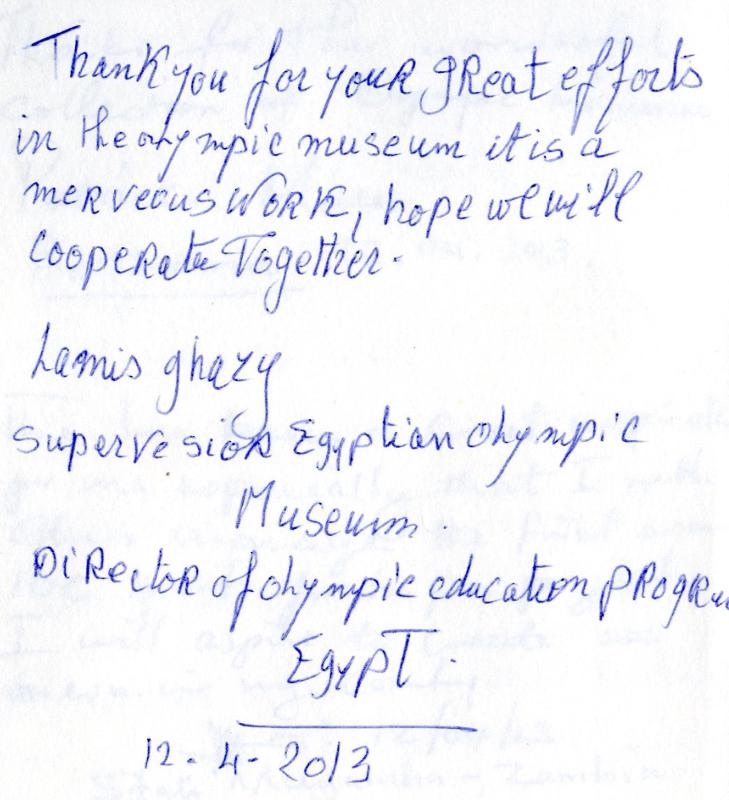 Thank you for your great efforts
in the olympic museum it is a
merveous work, hope we will
cooperate Together.
Lamis ghazy
supervesior Egyptian olympic
Museum.
Director of olympic education progra
Egypt.
12-4-2013